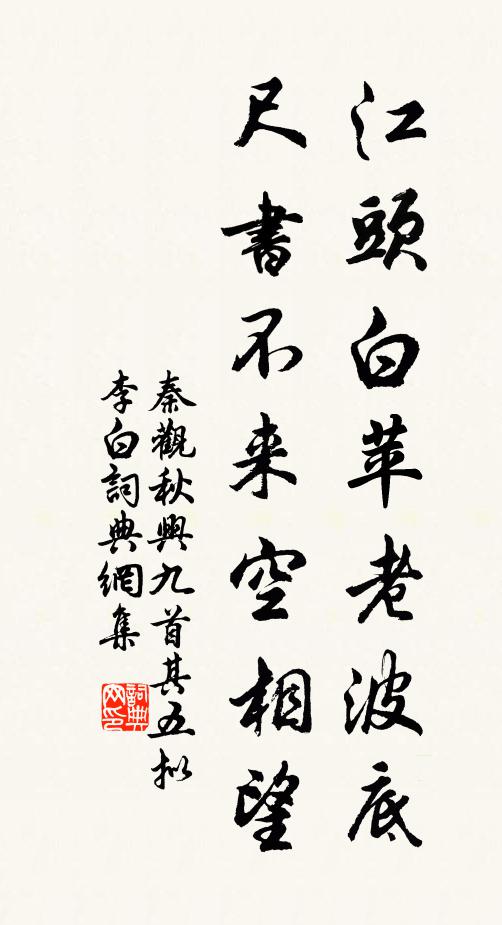 江頭白苹老波底
尺書不来空相望
秦觀秋興九首其五拟
李白詞典網集
詞典
网印